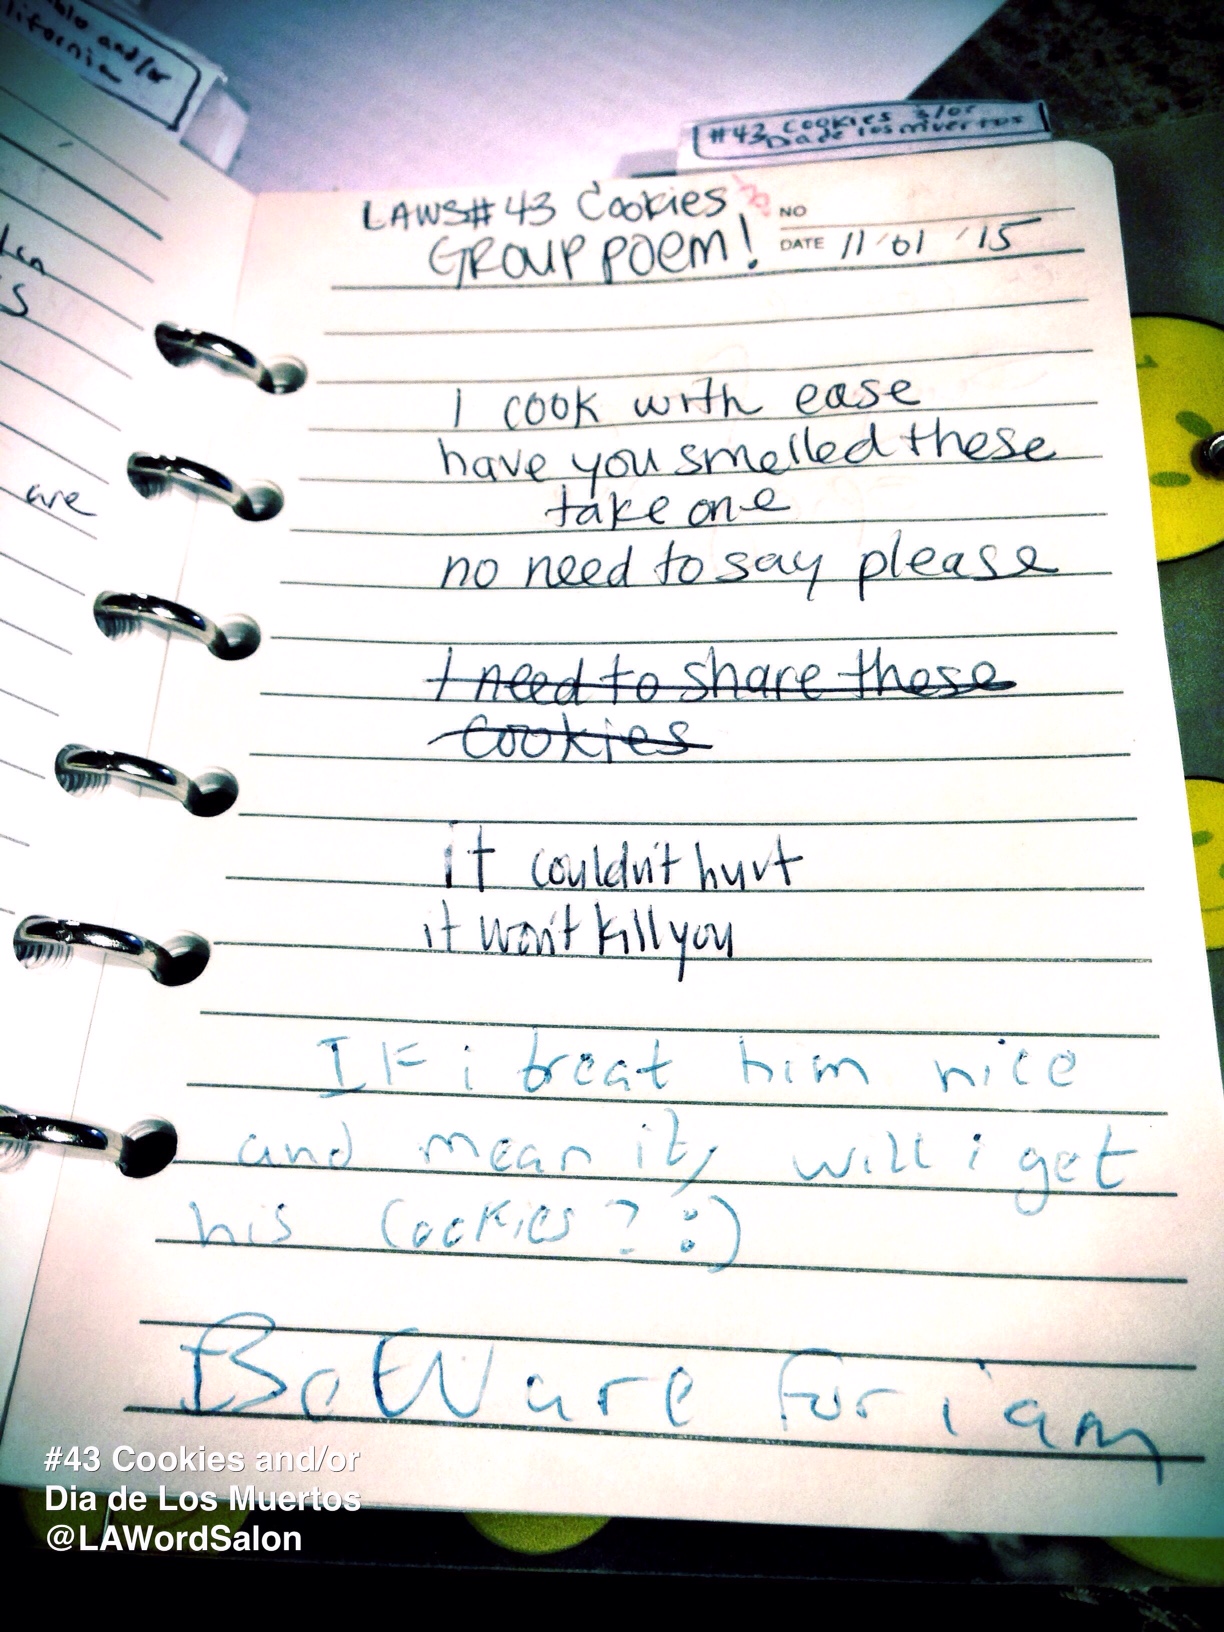 and/or
#43 Cookies &/or
Dia de los muertos
LAWS#43 Cookies
NO
GROUP POEM!
DATE 11/01/'15
are
I cook with ease
have you smelled these
take one
no need to say please
I need to share these
Cookies
it couldn't hurt
it won't kill you
IF i treat him nice
and mean it, will i get
his Cookies? :)
BeWare for i am
#43 Cookies and/or
Dia de Los Muertos
@LAWordSalon